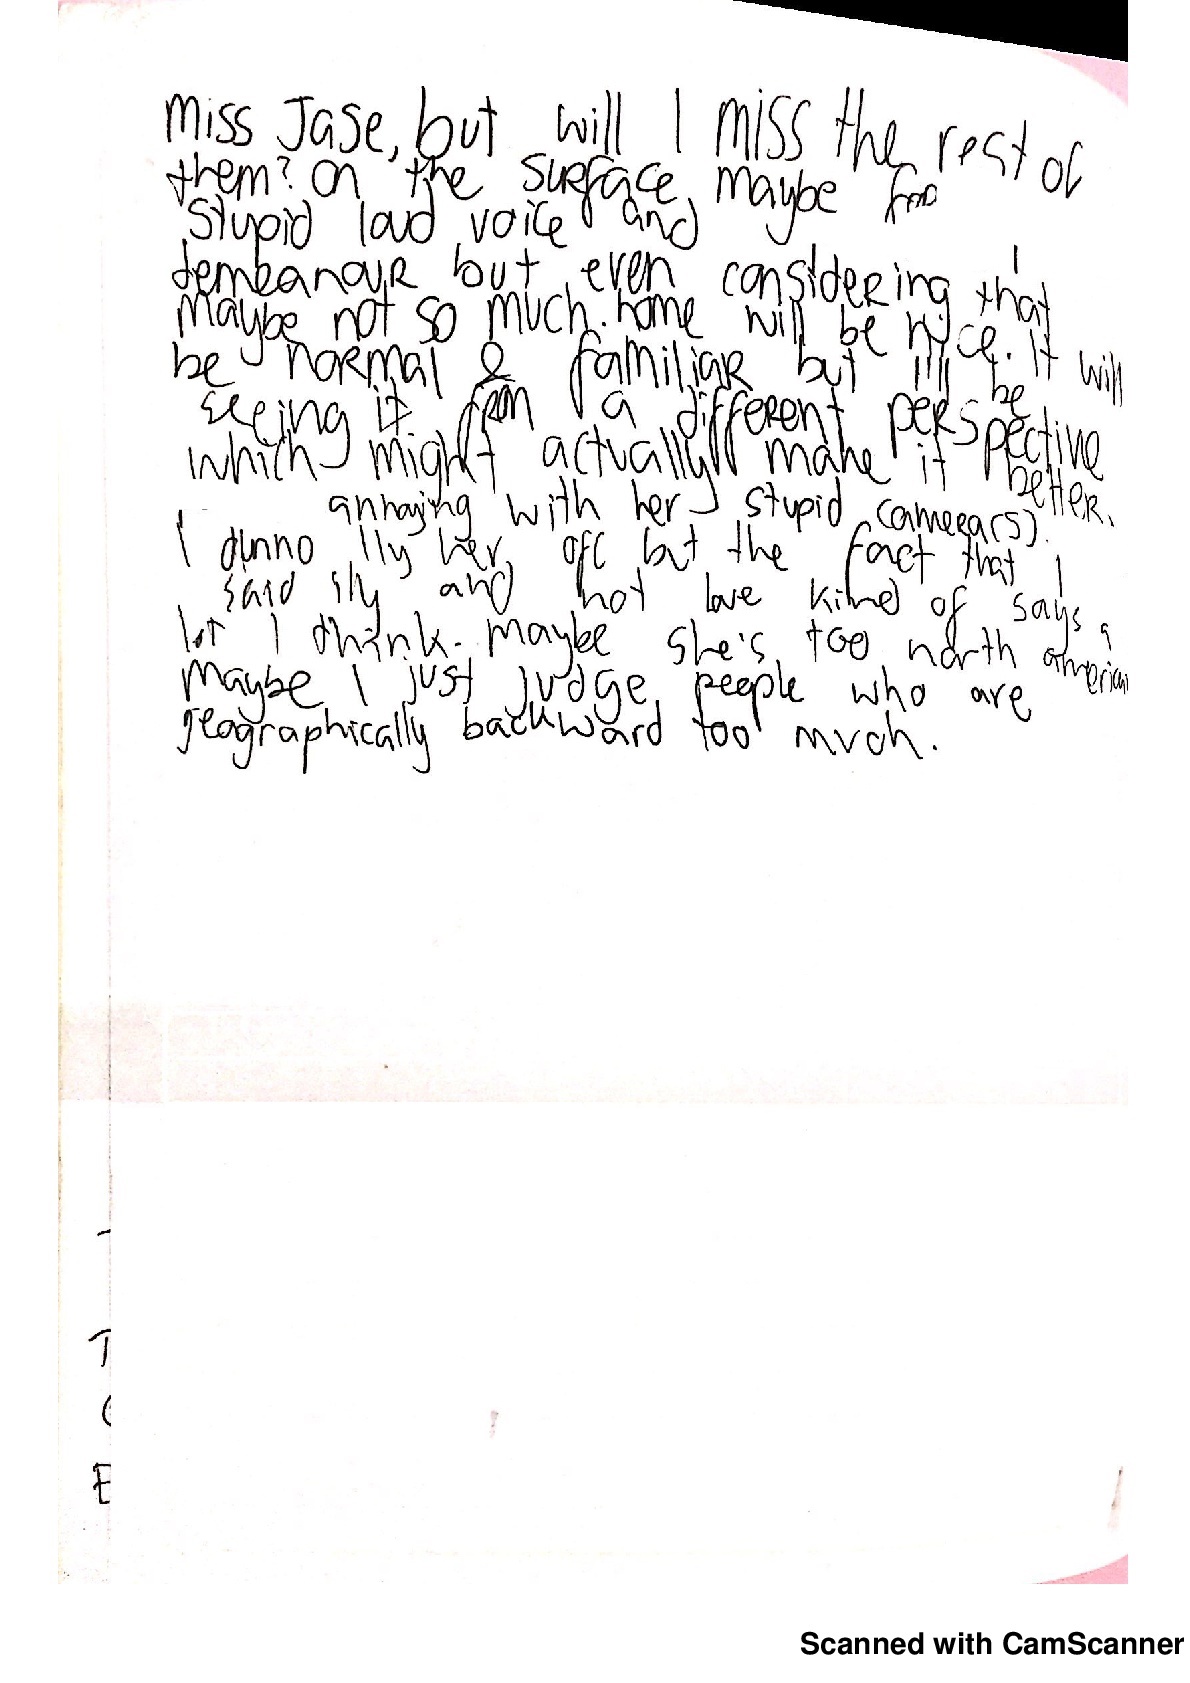 miss Jase, but will I miss the rest of
them? On the surface, maybe for
stupid loud voice and
demeanour but even considering that
maybe not so much. home will be nice. It will
be normal & familiar but I'll be
seeing it from a different perspective
which might actually make it better.
annoying with her stupid camera(s).
I dunno lly her off but the fact that I
said ily and not love kind of says a
lot I think. Maybe she's too north american
maybe I just judge people who are
geographically backward too much.
T
E
Scanned with CamScanner